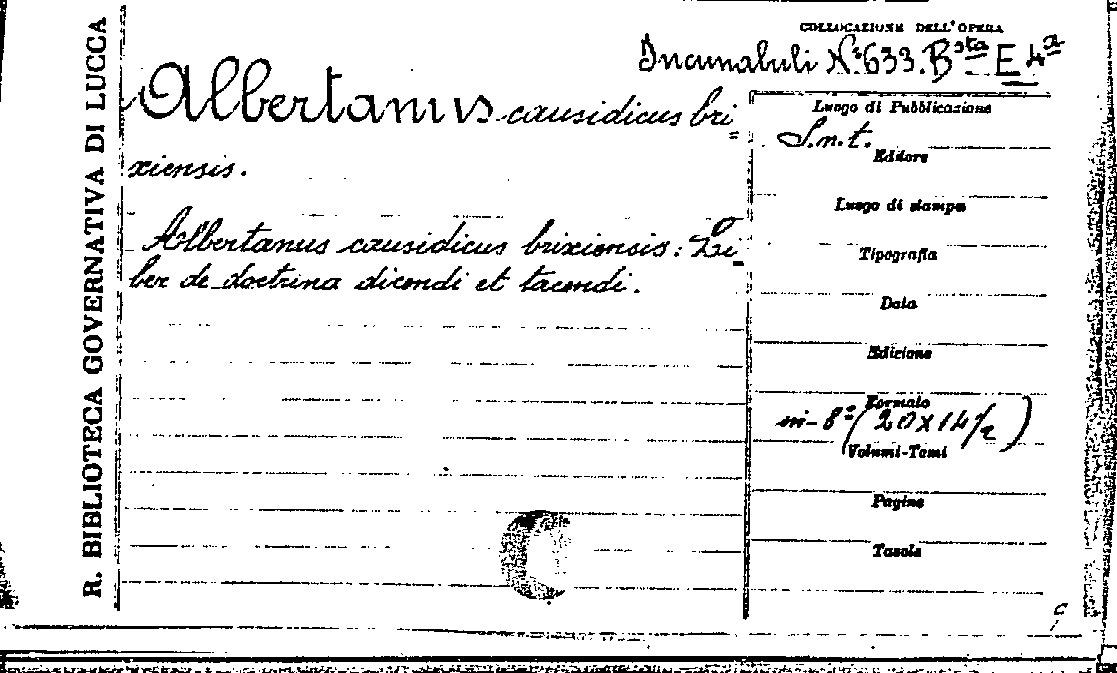 R. BIBLIOTECA GOVERNATIVA DI LUCCA
COLLOCAZIONE DELL'OPERA
Incunabuli N.º 633. Bsta E 4a
Albertanus causidicus bri=
xiensis.
Albertanus causidicus brixiensis: Li=
ber de doctrina dicendi et tacendi.
Luogo di Pubblicazione
S.n.t.
Editore
Luogo di stampa
Tipografia
Data
Edizione
Formato
in-8º (20x14/2)
Volumi-Tomi
Pagine
Tavole